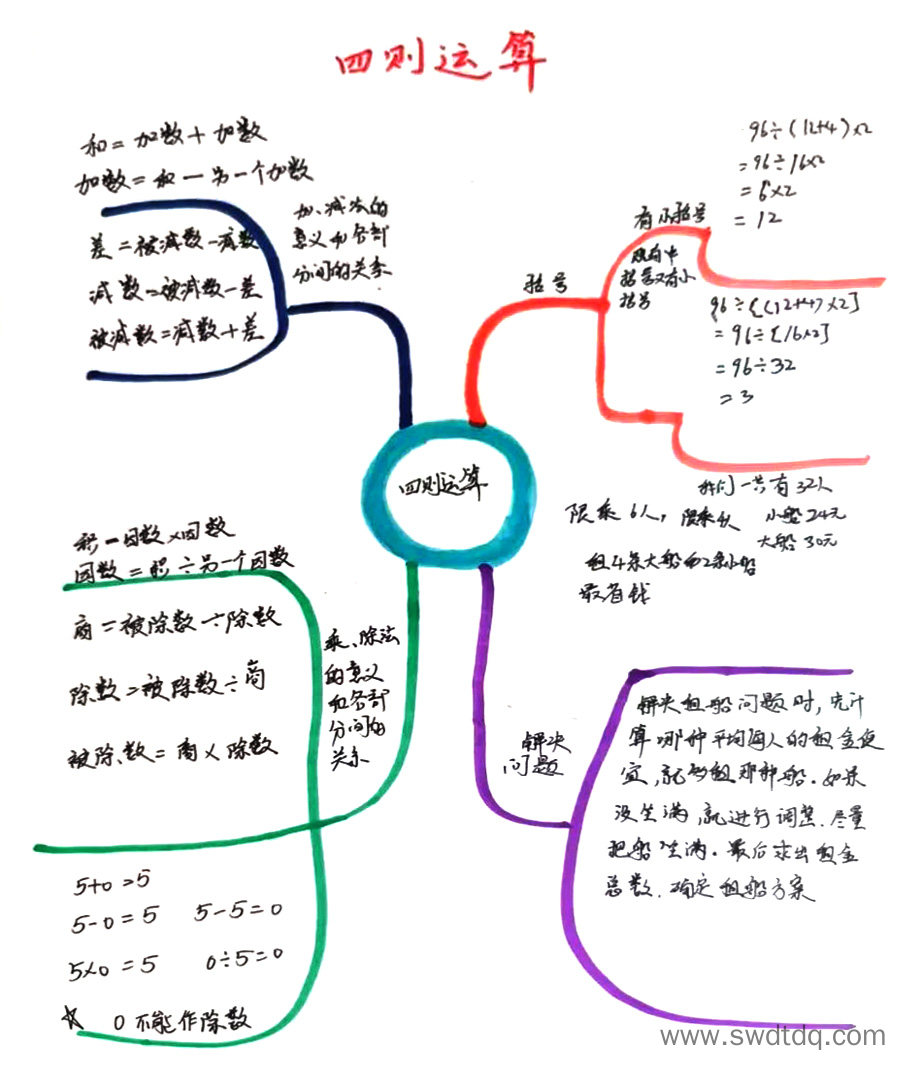 四则运算
和=加数+加数
加数=和-另一个加数
差=被减数-减数
减数=被减数-差
被减数=减数+差
加、减法的
意义和各部
分间的关系
括号
有小括号
96÷(12+4)×2
=96÷16×2
=6×2
=12
既有中
括号又有小
括号
96÷[(12+4)×2]
=96÷[16×2]
=96÷32
=3
四则运算
我们一共有32人
限乘6人，限乘4人 小船24元
大船30元
租4条大船和2条小船
最省钱
积=因数×因数
因数=积÷另一个因数
商=被除数÷除数
除数=被除数÷商
被除数=商×除数
乘、除法
的意义
和各部
分间的
关系
5+0=5
5-0=5 5-5=0
5×0=5 0÷5=0
☆ 0不能作除数
解决
问题
解决租船问题时，先计
算哪种平均每人的租金便
宜，就多租那种船。如果
没坐满，就进行调整.尽量
把船坐满。最后求出租金
总数.确定租船方案
www.swdtdq.com